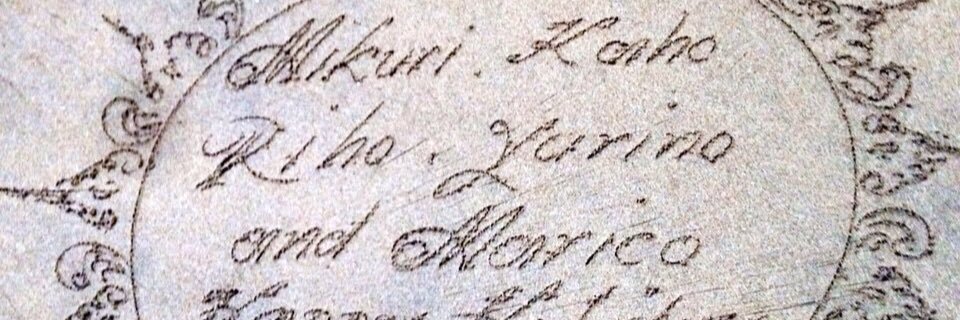 Mikuri. Kaho
Riho. Yurino
and Marico